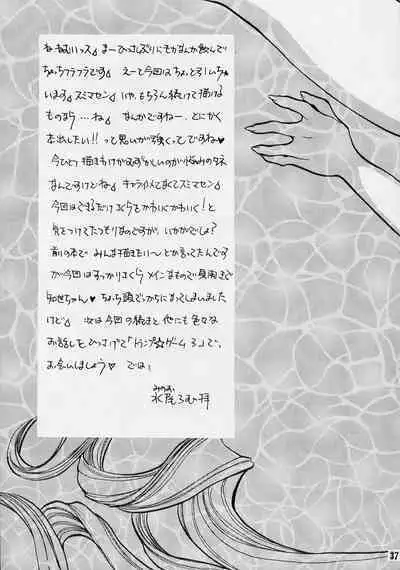 ねねむいっス♪ まーひさしぶりにもかなんか飲んで
ちょっちフラフラです。 えーて今回はちょっと引いちゃ
います。スミマセン。いや、もちろん続けて描ける
ものなら…ね♪ なんかですねー、とにかく
本出したい!!って思いが強くってですね♥
今ひとつ描きわけがむずかしいのが悩みのタネ
なんですけどね♪ キャライメてなくてスミマセン
今回はできるだけさくらをかわいくかわいく!と
気をつけてたつもりなのですが、いかがでしょ?
前の本で みんな描きたい〜とか言ってたんです
が今回はすっかりさくらメインなもので見開きで
知世ちゃん♥ちょっち頭でっかちになってしまいました
けど♪ 次は今回の続きと他にも色々な
お話しをひっさげて「トランプ☆ゲーム3」で、
お会いしましょう♡ では。
みのお
水尾ろむ拝
37